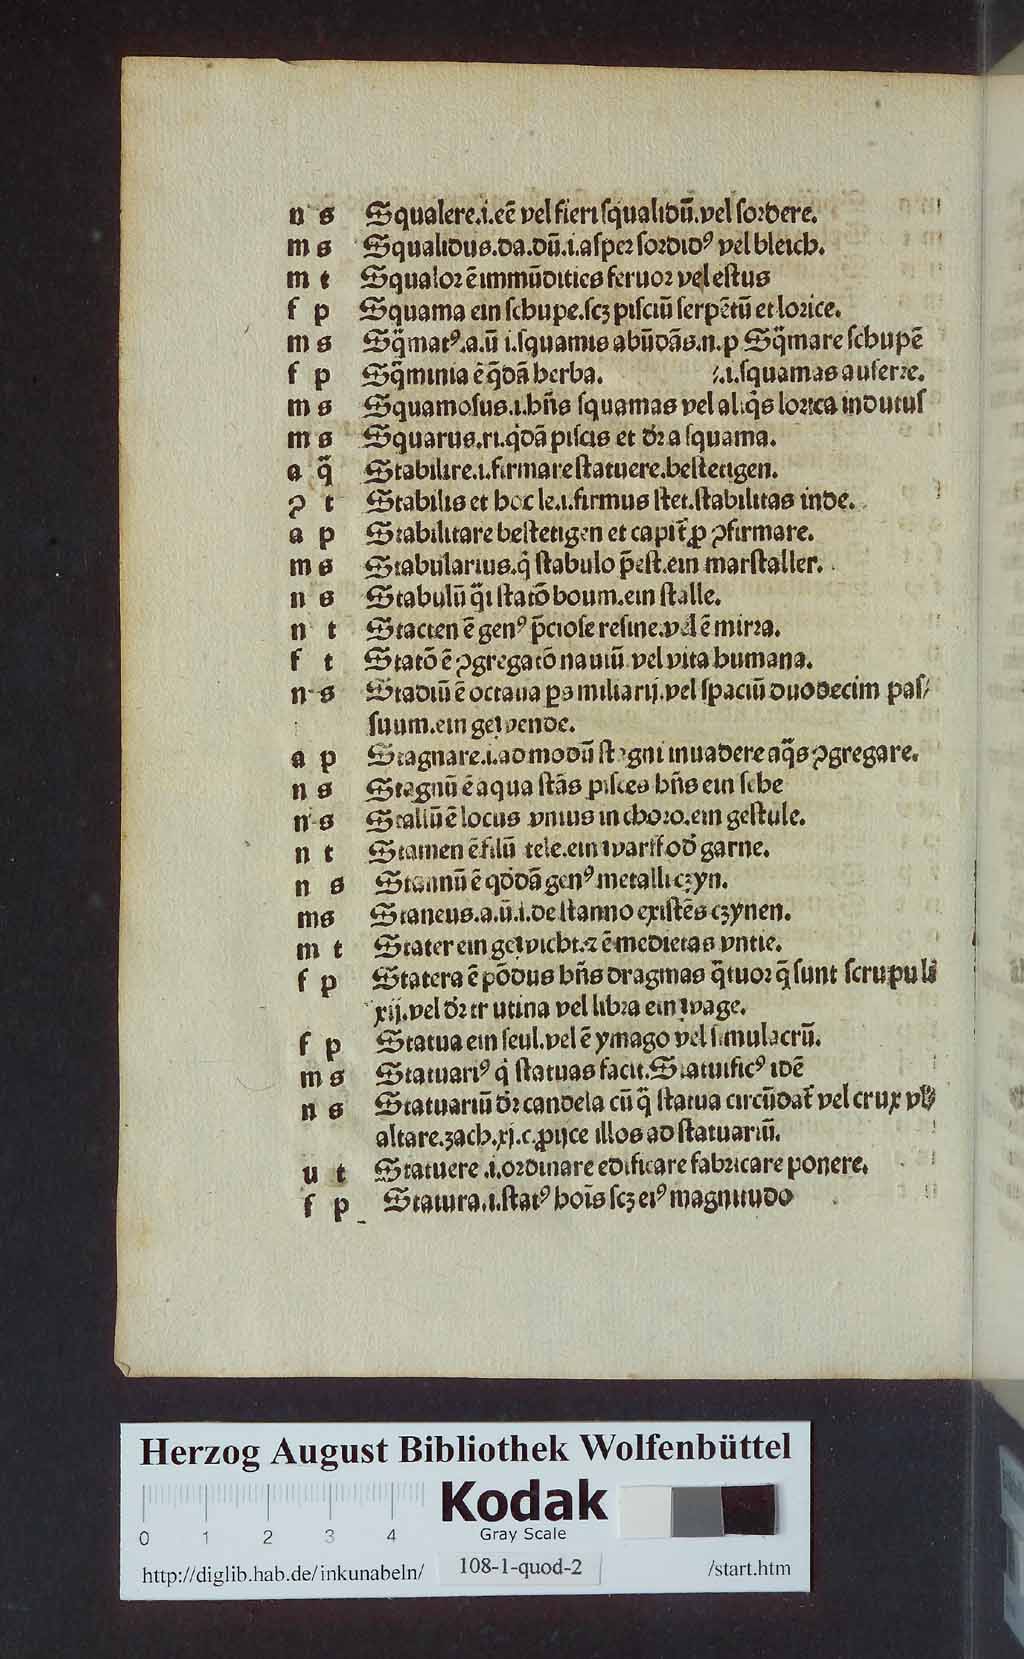 n s Squalere.i.eē vel fieri ſqualidū.vel ſordere.
m s Squalidus.da.dū.i.aſper ſordidꝰ vel bleich.
m t Squalor ē immūdities feruor vel eſtus
f p Squama ein ſchupe.ſcꝫ piſciū ſerpētū et lorice.
m s Sq̄matꝰ.a.ū i.ſquamis abūdās.n.p Sq̄mare ſchupē
f p Sq̄minia ē q̄dā herba. ⁊.i.ſquamas auferre.
m s Squamoſus.i.hn̄s ſquamas vel aliq̄s lorica indutuſ
m s Squarus.ri.q̇dā piſcis et dr̄ a ſquama.
a q̄ Stabilire.i.firmare ſtatuere.beſtetigen.
ꝯ t Stabilis et hoc le.i.firmus ſtet.ſtabilitas inde.
a p Stabilitare beſtetigen et capit̄ ꝓ ꝯfirmare.
m s Stabularius.q̇ ſtabulo p̄eſt.ein marſtaller.
n s Stabulū q̄ſi ſtatō boum.ein ſtalle.
n t Stacten ē genꝰ p̄cioſe reſine.vel ē mirra.
f t Statō ē ꝯgregatō nauiū vel vita humana.
n s Stadiū ē octaua ꝑs miliarij.vel ſpaciū duodecim paſ/
ſuum.ein gewende.
a p Stagnare.i.ad modū ſtagni inuadere aq̄s ꝯgregare.
n s Stagnū ē aqua ſtās piſces hn̄s ein ſche
n s Stallū ē locus vnius in choro.ein geſtule.
n t Stamen ē filū tele.ein warff od̓ garne.
n s Stannū ē qoddā genꝰ metalli czyn.
m s Staneus.a.ū.i.de ſtanno exiſtēs czynen.
m t Stater ein gewicht.⁊ ē medietas vntie.
f p Statera ē pōdus hn̄s dragmas q̄tuor q̄ ſunt ſcrupuli
xij.vel dr̄ trutina vel libra ein wage.
f p Statua ein ſeul.vel ē ymago vel ſimulacrū.
m s Statuariꝰ q̇ ſtatuas facit.Statuificꝰ idē
n s Statuariū dr̄ candela cū q̄ ſtatua circūdat̄ vel crux vl̓
altare.zach.xj.c.ꝓijce illos ad ſtatuariū.
u t Statuere .i.ordinare edificare fabricare ponere.
f p Statura.i.ſtatꝰ hoīs ſcꝫ eiꝰ magnitudo
Herzog August Bibliothek Wolfenbüttel
0 1 2 3 4
Kodak
Gray Scale
http://diglib.hab.de/inkunabeln/ 108-1-quod-2 /start.htm